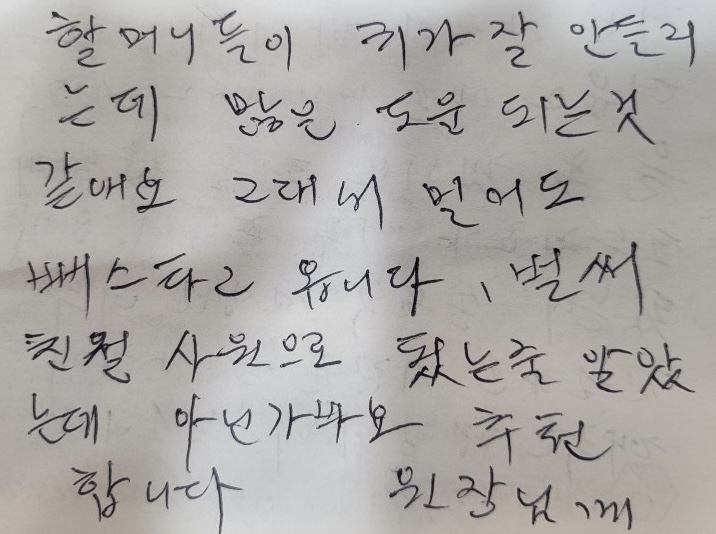 할머니들이 귀가 잘 안들리
는데 많은 도운 되는것
같애요 그대서 멀어도
뻐스타고 옵니다, 벌써
친절 사원으로 됬는줄 알았
는데 아닌가봐요 추천
합니다 원장님께